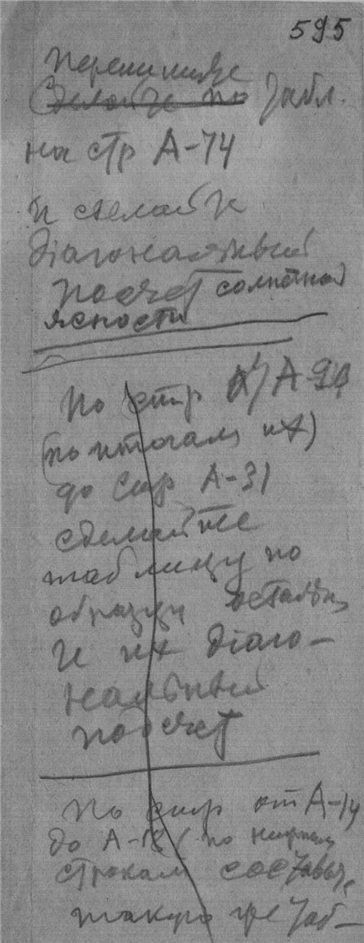 595
Перепишите
Сделайте по табл.
на стр А-74
и сделайте
діагональный
подсчет солнечной
ясности
По стр А-90
(по итогам их)
до стр А-31
сделайте
таблицу по
образцу остальн
и их діаго-
нальный
подсчет
По стр от А-14
до А-18 (по
строкам составьте
такую же таб-